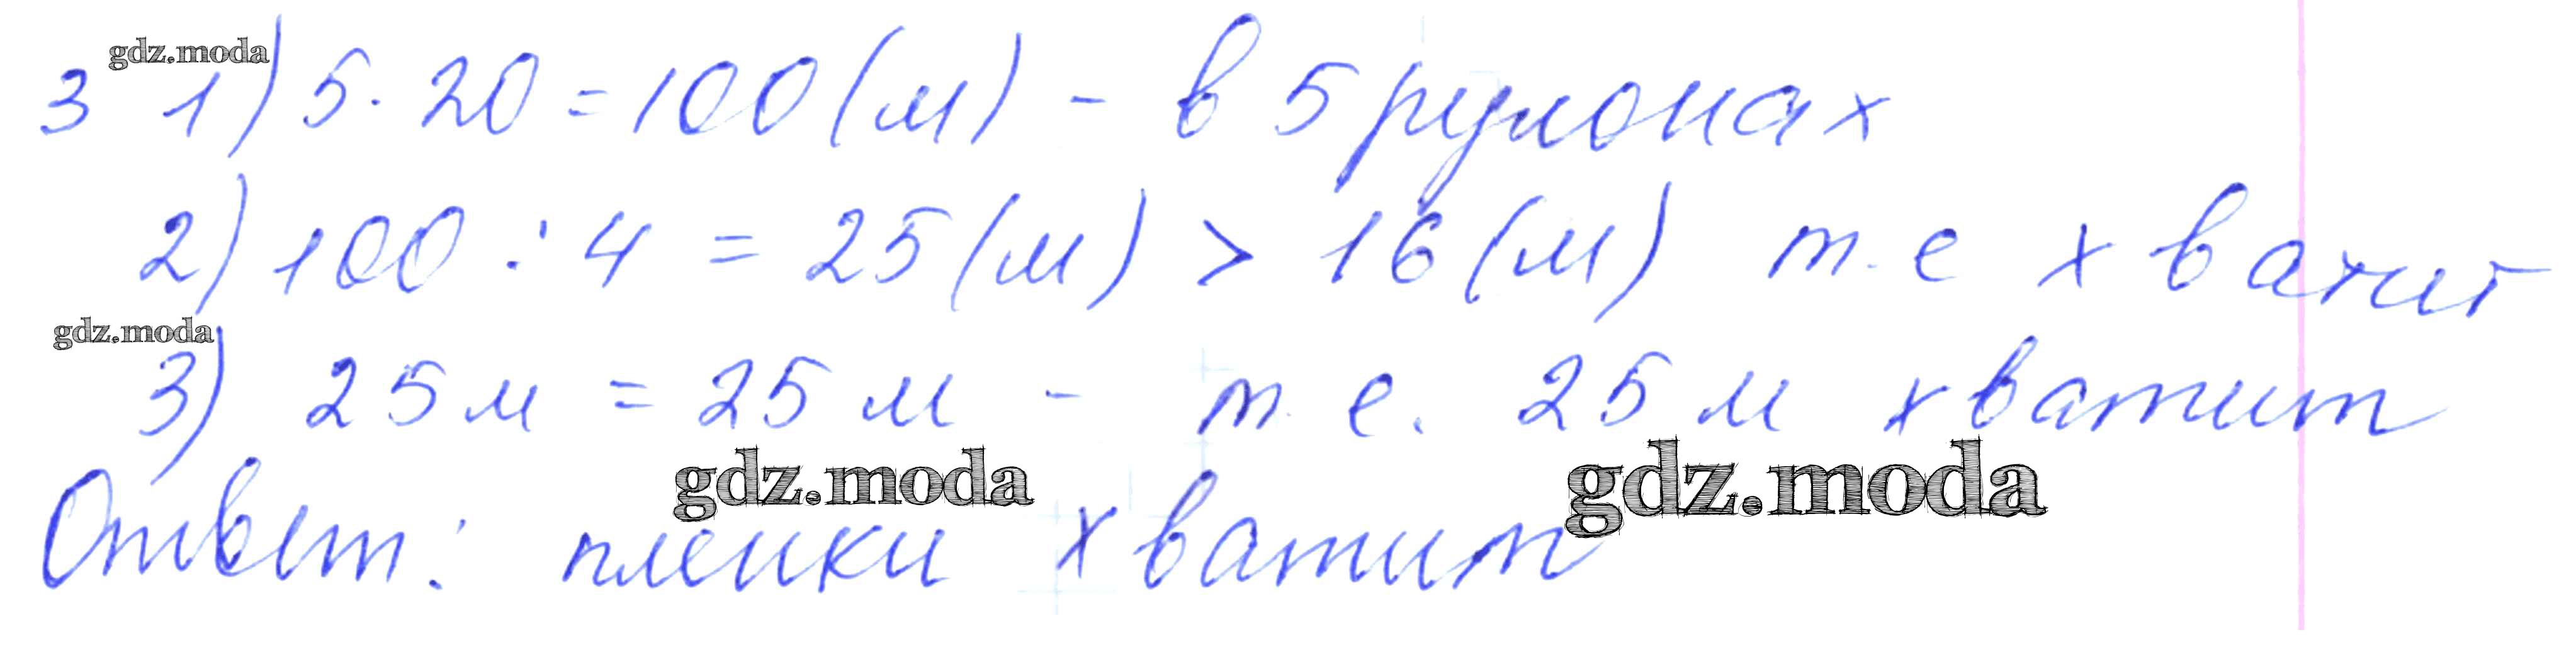 gdz.moda
3 1) 5 · 20 = 100 (м) - в 5 рулонах
2) 100 : 4 = 25 (м) > 16 (м) т.е хватит
gdz.moda
3) 25 м = 25 м - т.е. 25 м хватит
gdz.moda gdz.moda
Ответ: пленки хватит